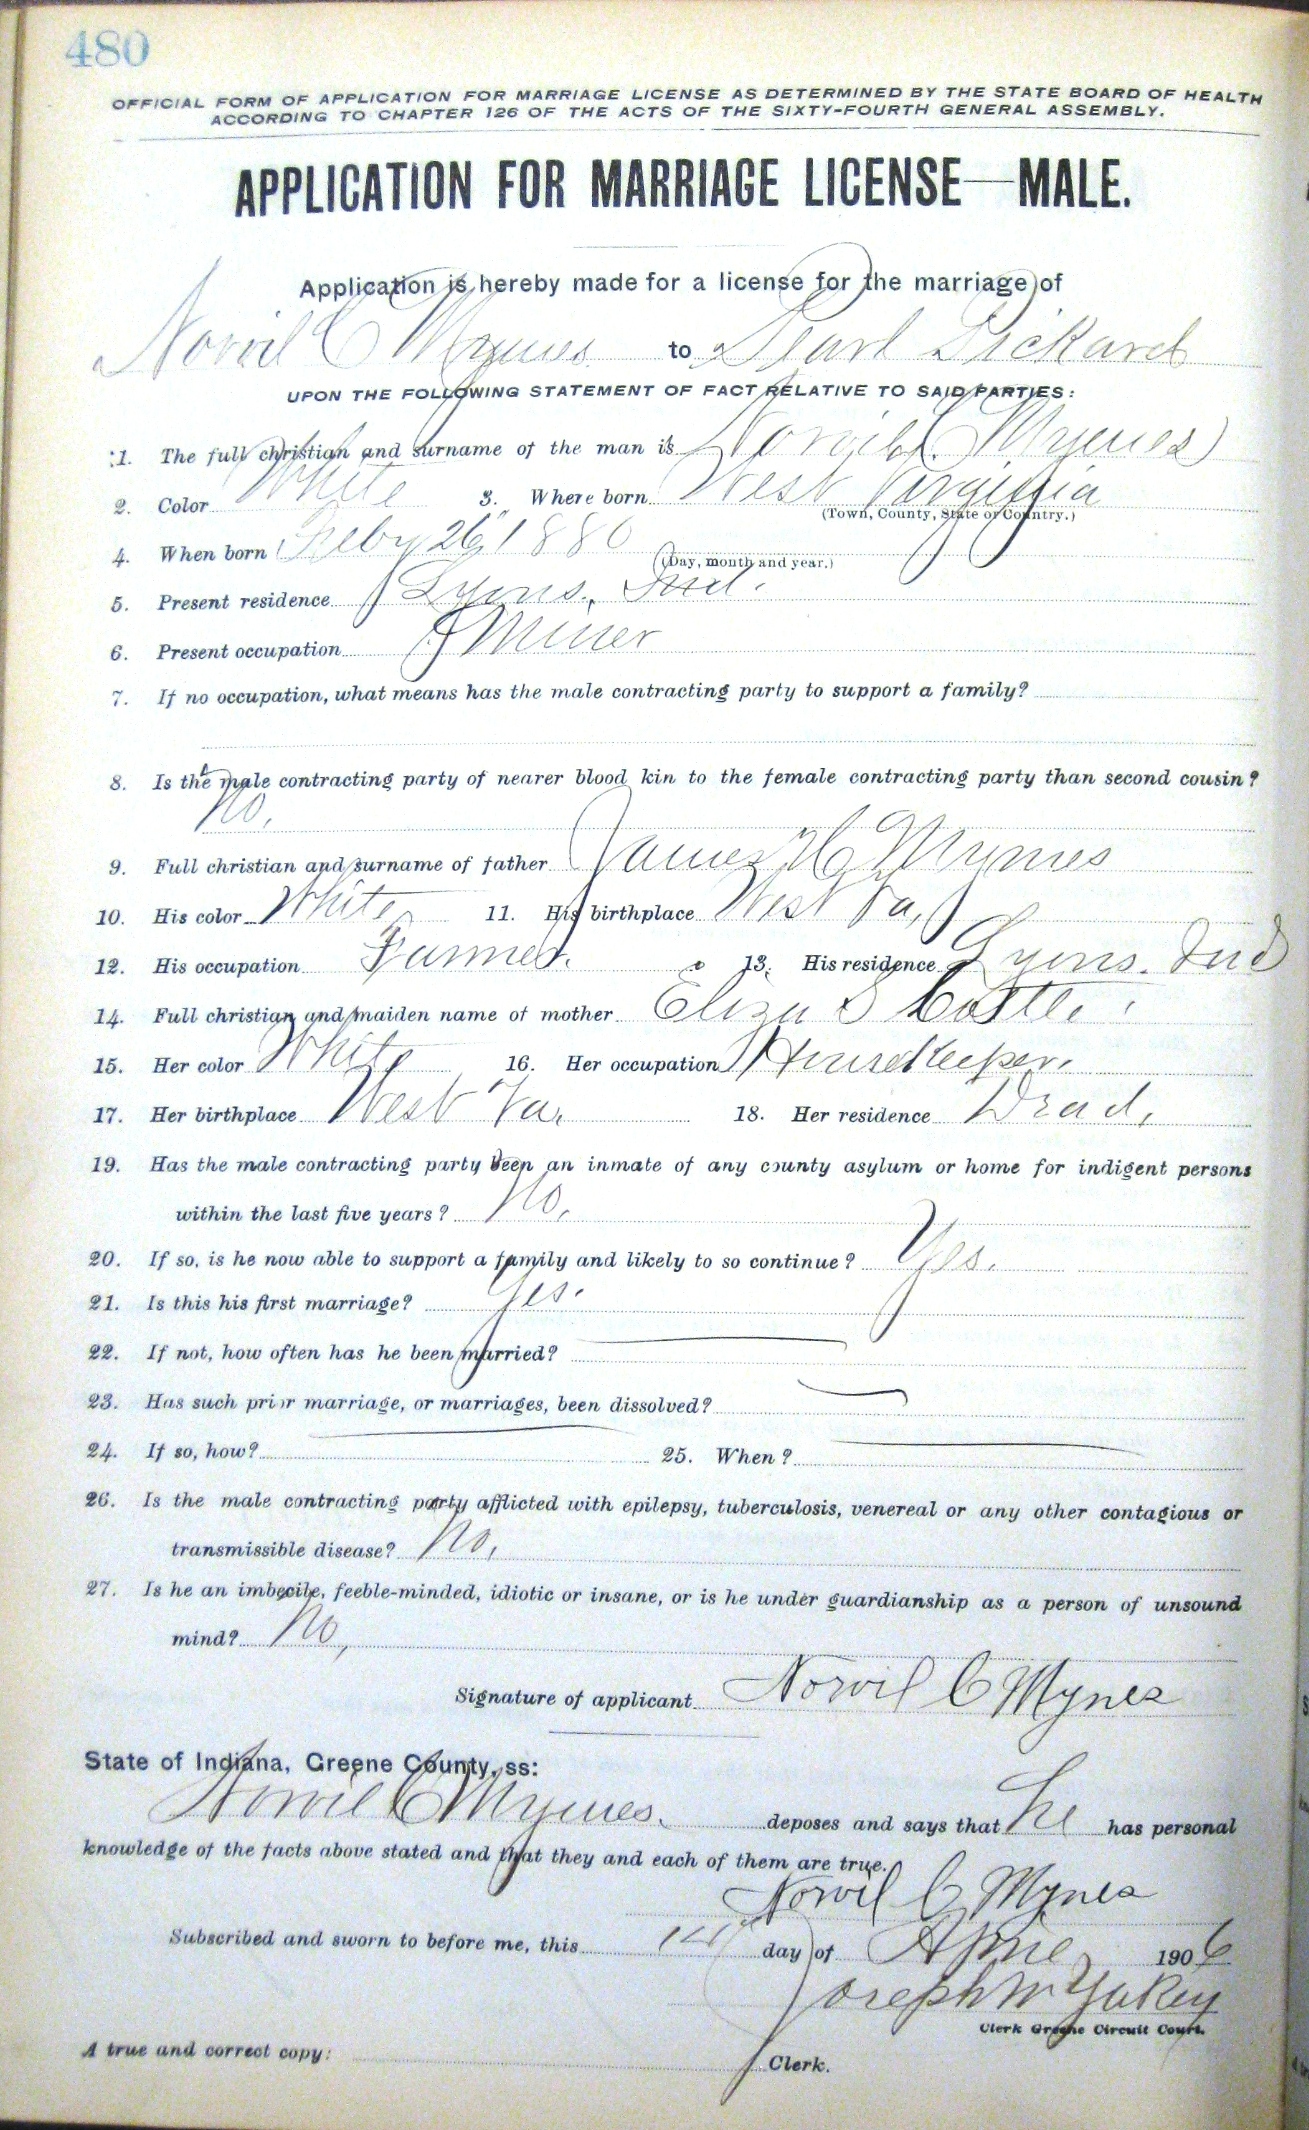 480
OFFICIAL FORM OF APPLICATION FOR MARRIAGE LICENSE AS DETERMINED BY THE STATE BOARD OF HEALTH
ACCORDING TO CHAPTER 126 OF THE ACTS OF THE SIXTY-FOURTH GENERAL ASSEMBLY.
APPLICATION FOR MARRIAGE LICENSE—MALE.
Application is hereby made for a license for the marriage of
Norvil C Mynes to Pearl Pickard
UPON THE FOLLOWING STATEMENT OF FACT RELATIVE TO SAID PARTIES:
1. The full christian and surname of the man is Norvil C. Mynes
2. Color White 3. Where born West Virginia
(Town, County, State or Country.)
4. When born Feby 26, 1880
(Day, month and year.)
5. Present residence Lyons, Ind.
6. Present occupation Miner
7. If no occupation, what means has the male contracting party to support a family?
8. Is the male contracting party of nearer blood kin to the female contracting party than second cousin?
No.
9. Full christian and surname of father James H Mynes
10. His color White 11. His birthplace West Va,
12. His occupation Farmer. 13. His residence Lyons. Ind
14. Full christian and maiden name of mother Eliza S Costle
15. Her color White 16. Her occupation Housekeeper.
17. Her birthplace West Va, 18. Her residence Dead.
19. Has the male contracting party been an inmate of any county asylum or home for indigent persons
within the last five years? No.
20. If so, is he now able to support a family and likely to so continue? Yes.
21. Is this his first marriage? Yes.
22. If not, how often has he been married?
23. Has such prior marriage, or marriages, been dissolved?
24. If so, how? 25. When?
26. Is the male contracting party afflicted with epilepsy, tuberculosis, venereal or any other contagious or
transmissible disease? No,
27. Is he an imbecile, feeble-minded, idiotic or insane, or is he under guardianship as a person of unsound
mind? No,
Signature of applicant Norvil C Mynes
State of Indiana, Greene County, ss:
Norvil C Mynes. deposes and says that he has personal
knowledge of the facts above stated and that they and each of them are true.
Norvil C Mynes
Subscribed and sworn to before me, this 14" day of April 1906
Joseph W Yakey
Clerk Greene Circuit Court.
A true and correct copy: Clerk.